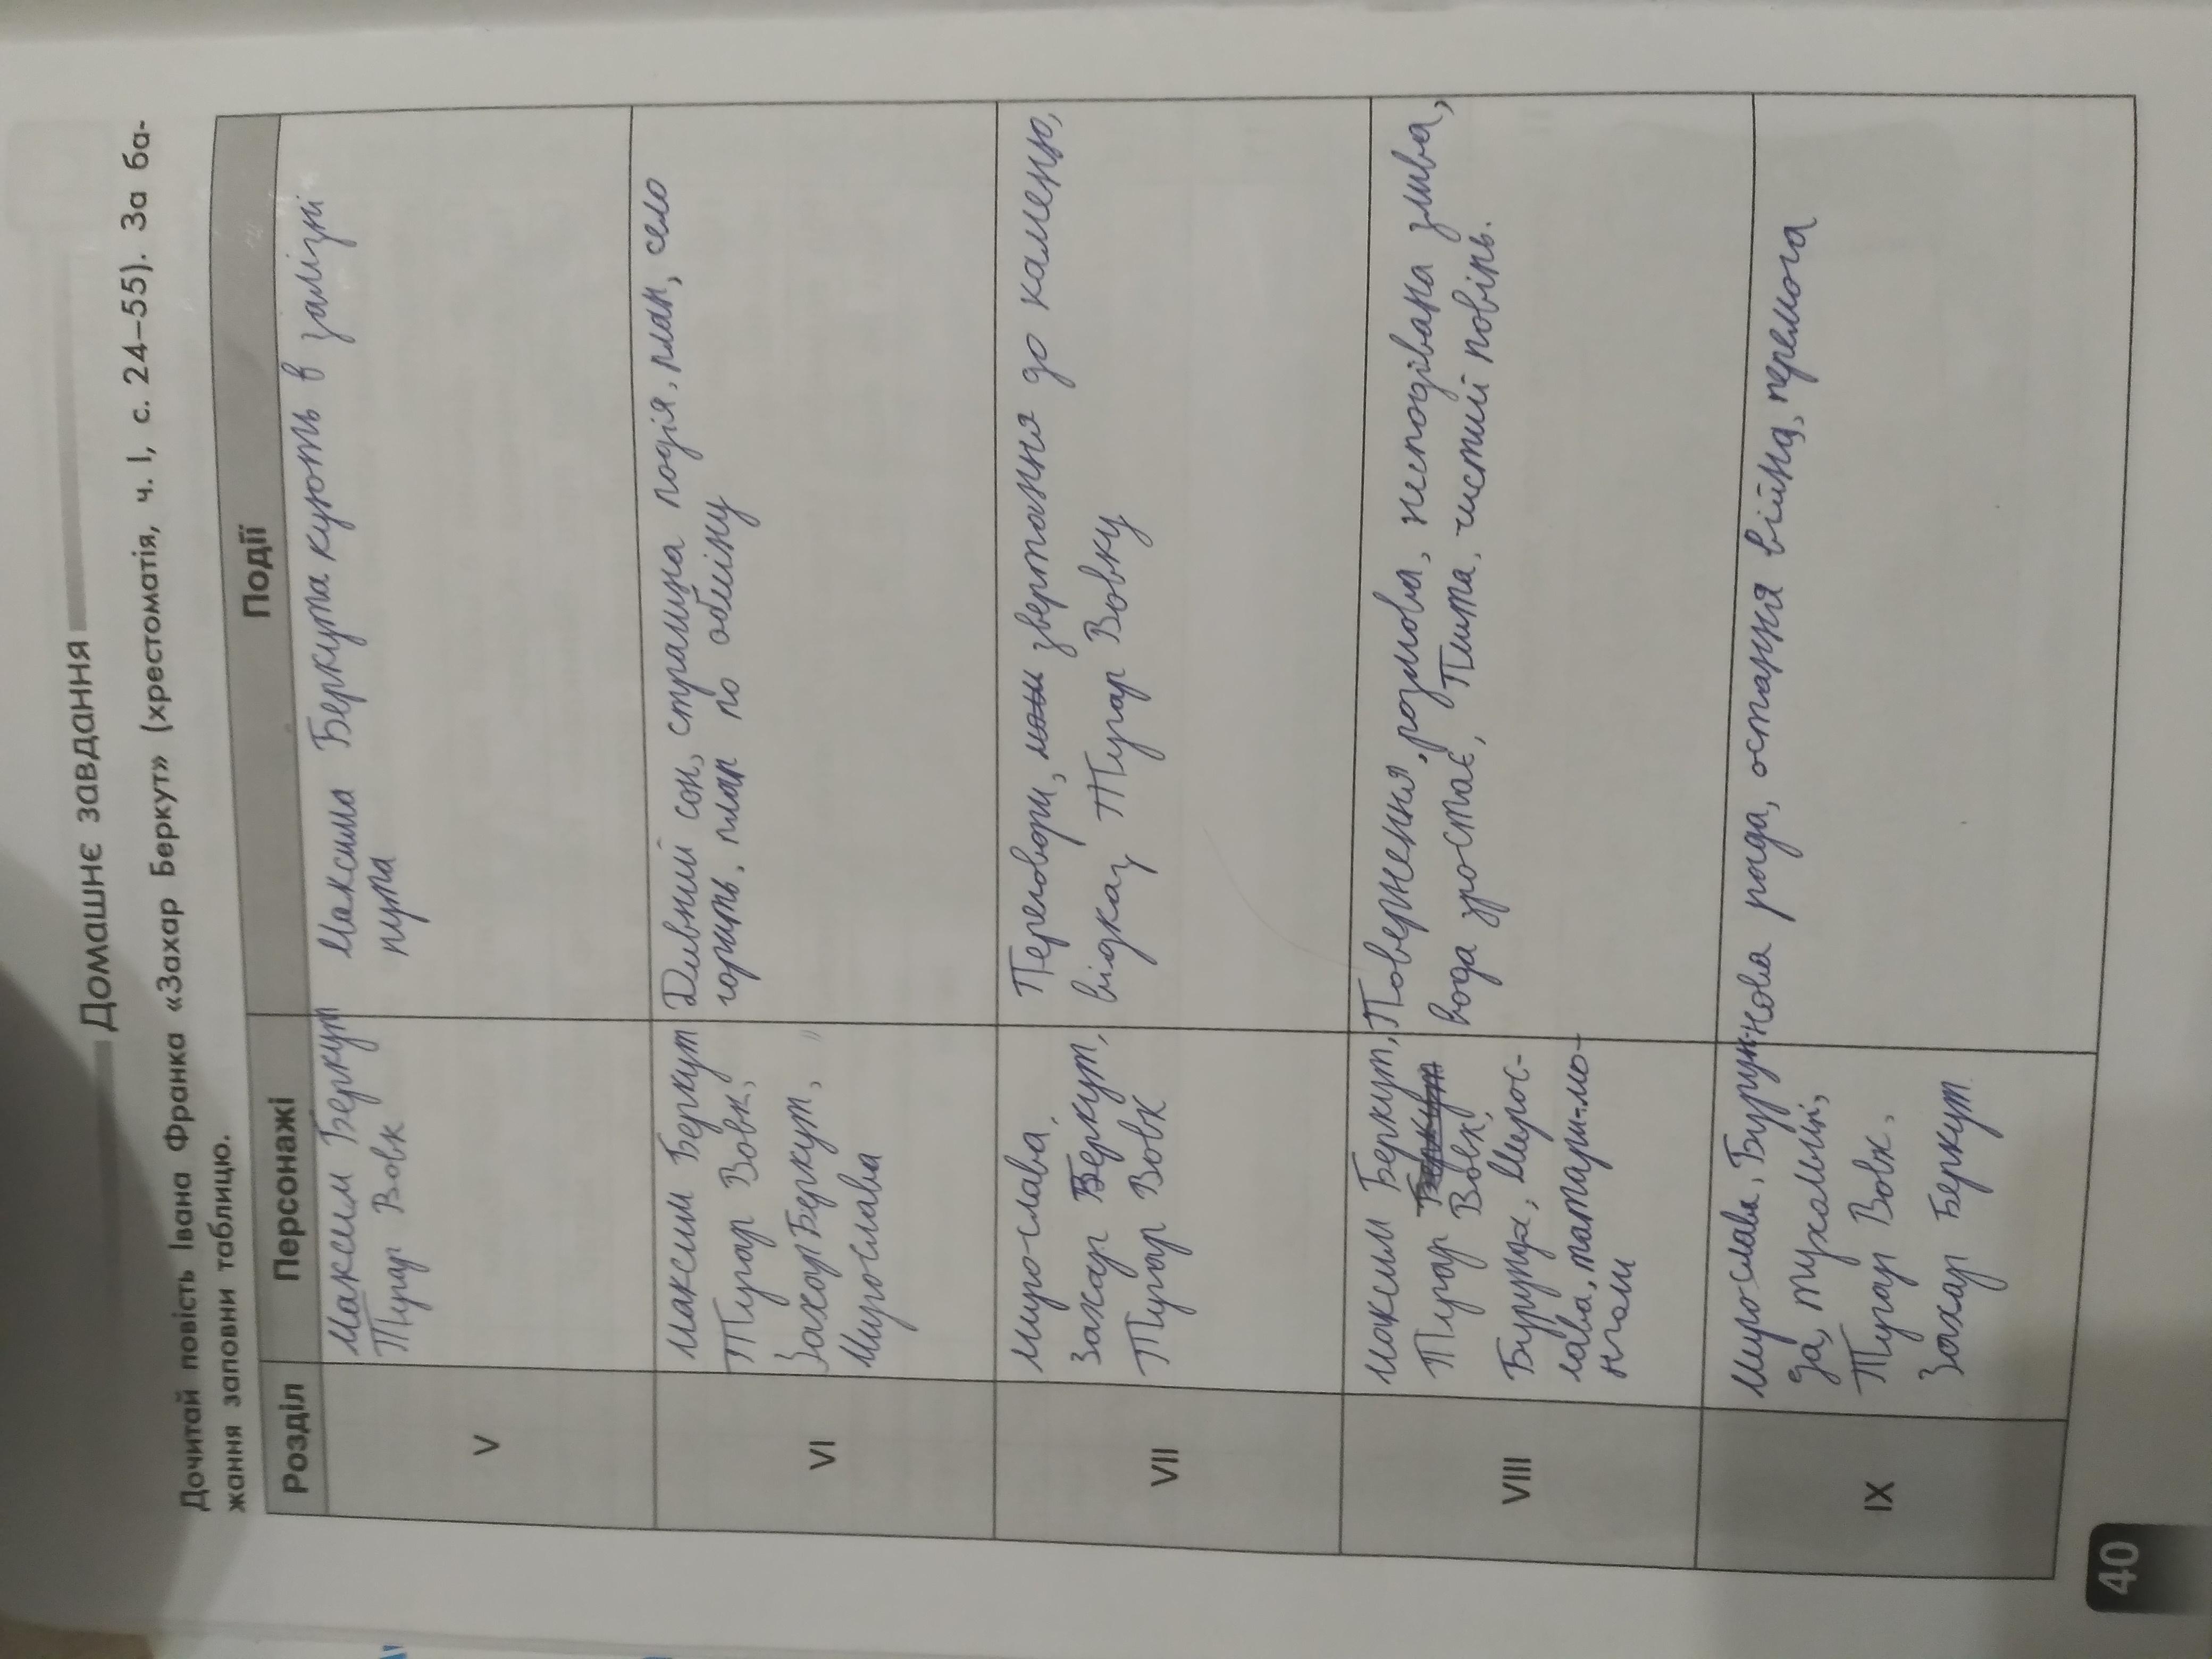 Домашнє завдання
Дочитай повість Івана Франка «Захар Беркут» (хрестоматія, ч. І, с. 24–55). За ба-
жання заповни таблицю.
Розділ Персонажі Події
V
Максим Беркут
Тугар Вовк
Максима Беркута кують в залізні
пута
VI
Максим Беркут
Тугар Вовк,
Захар Беркут,
Мирослава
Дивний сон, страшна подія, план, село
горить, план по обміну
VII
Мирослава,
Захар Беркут,
Тугар Вовк
Переговори, звертання до каменю,
відказ Тугар Вовку
VIII
Максим Беркут,
Тугар Вовк,
Бурунда, Мирос-
лава, татари-мо-
нголи
Повернення, розмова, несподівана злива,
вода зростає, Пита, чистий повінь.
IX
Мирослава, Бурун-
да, тухольці,
Тугар Вовк,
Захар Беркут
нова рада, остання війна, перемога
40